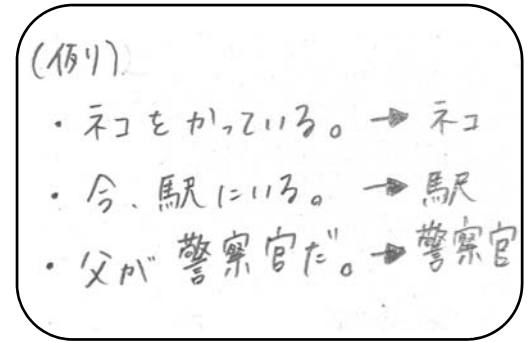 (例)
・ネコをかっている。→ネコ
・今、駅にいる。→駅
・父が警察官だ。→警察官